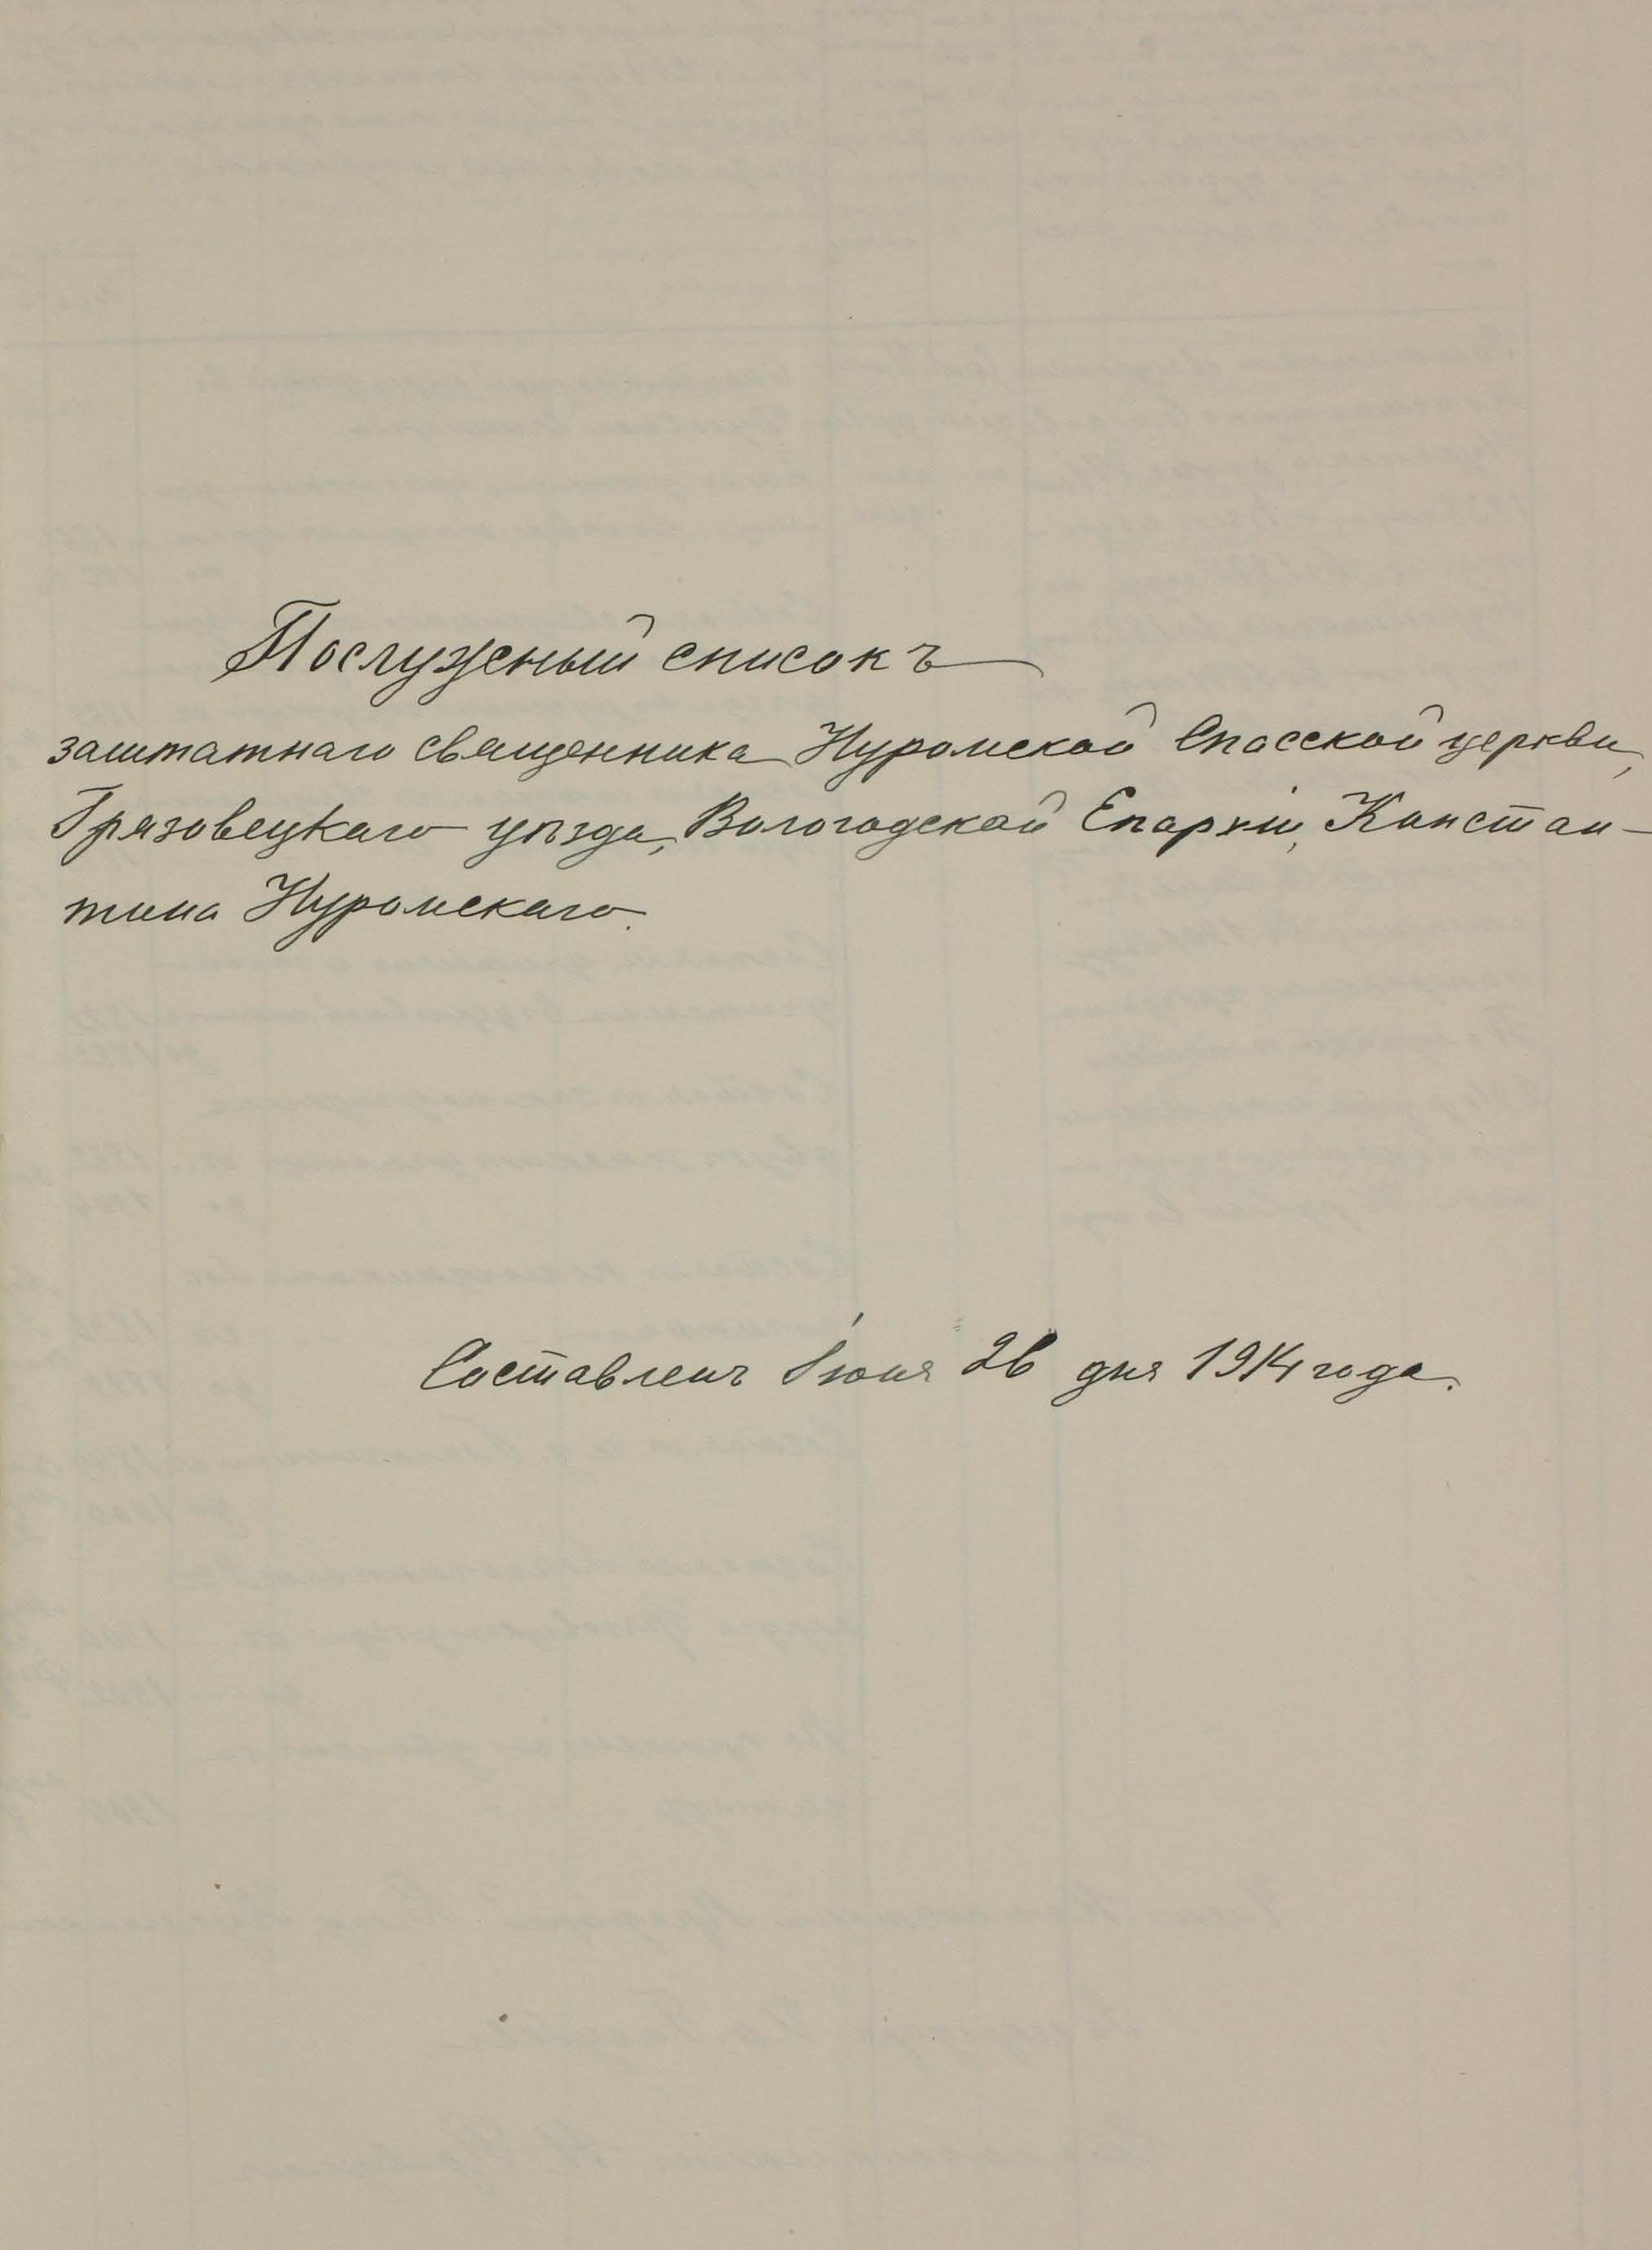 Послужный списокъ
заштатнаго священника Нуромской Спасской церкви,
Грязовецкаго уѣзда, Вологодской Епархіи, Констан-
тина Нуромскаго.
Составленъ Іюня 26 дня 1914 года.